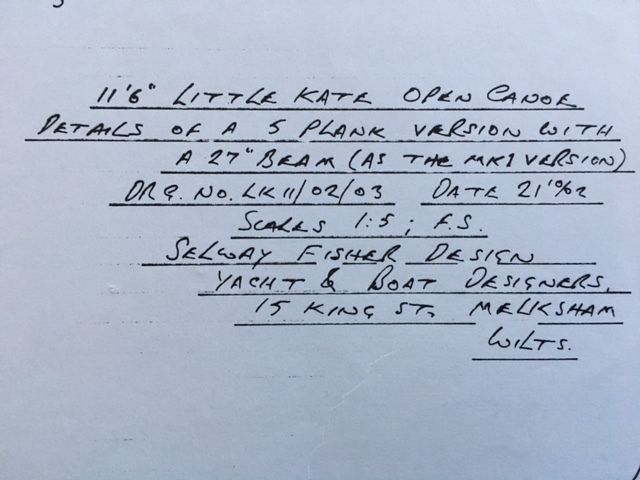 11'6" LITTLE KATE OPEN CANOE
DETAILS OF A 5 PLANK VERSION WITH
A 27" BEAM (AS THE MK1 VERSION)
DRG. NO. LK11/02/03 DATE 21
SCALES 1:5 ; F.S.
SELWAY FISHER DESIGN
YACHT & BOAT DESIGNERS.
15 KING ST. MELKSHAM
WILTS.